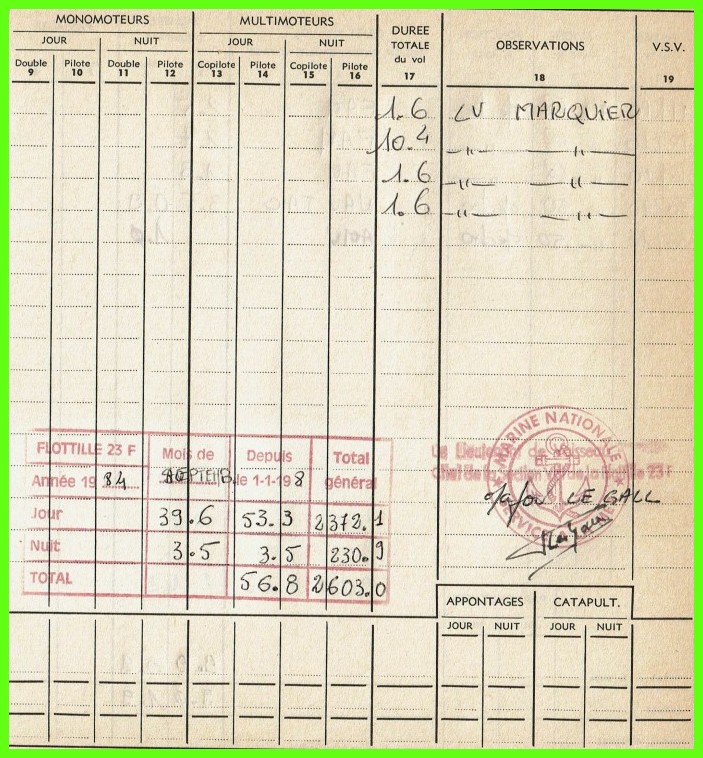 MONOMOTEURS MULTIMOTEURS DUREE TOTALE du vol OBSERVATIONS V.S.V.
JOUR NUIT JOUR NUIT
Double 9 Pilote 10 Double 11 Pilote 12 Copilote 13 Pilote 14 Copilote 15 Pilote 16 17 18 19
1.6 LV MARQUIER
10.4 —〃— —〃—
1.6 —〃— —〃—
1.6 —〃— —〃—
MARINE NATIONALE
FLOTTILLE 23 F Mois de Depuis Total
Année 19 84 SEPTEMB. le 1-1-198 général
Jour 39.6 53.3 2372.1
Nuit 3.5 3.5 230.9
TOTAL 56.8 2603.0
23 F
LE GALL
SERVICE
APPONTAGES CATAPULT.
JOUR NUIT JOUR NUIT